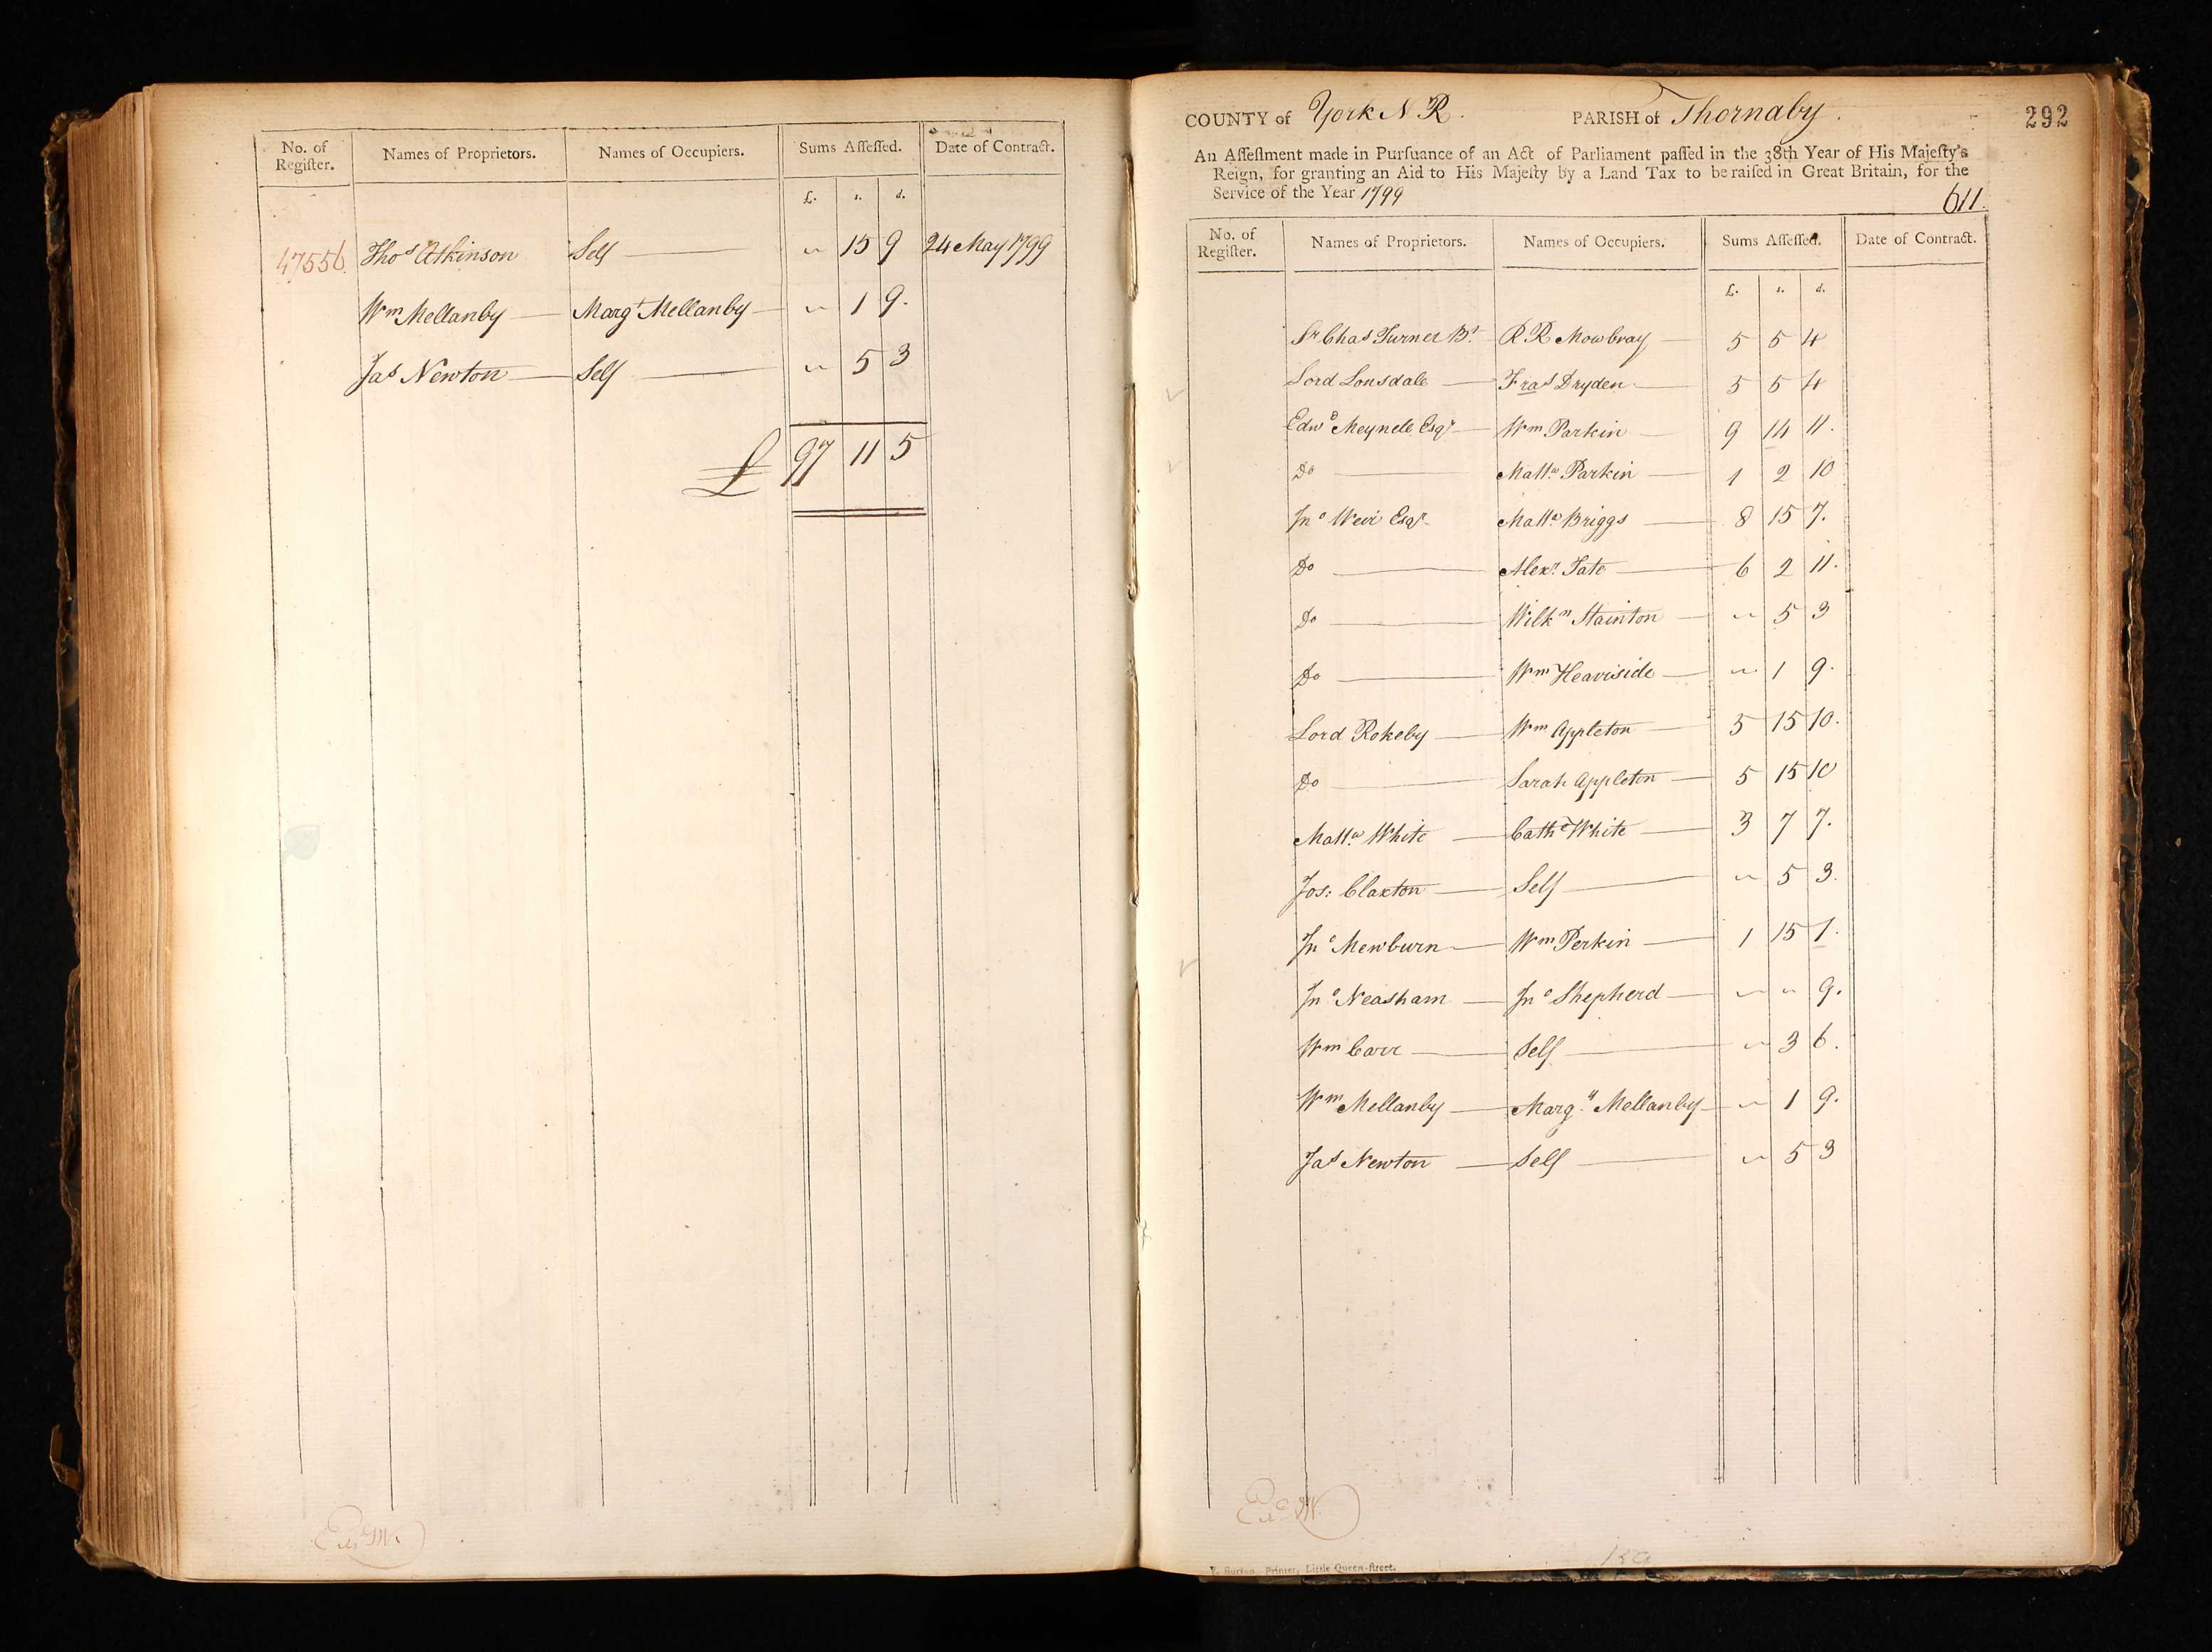 No. of Regiſter. Names of Proprietors. Names of Occupiers. Sums Aſſeſſed. Date of Contract.
£. s. d.
47556 Thos Atkinson Self — " 15 9 24 May 1799
Wm Mellanby — Margt Mellanby — " 1 9.
Jas Newton — Self — " 5 3
£ 97 11 5
COUNTY of York N R. PARISH of Thornaby. 292
An Aſſeſſment made in Purſuance of an Act of Parliament paſſed in the 38th Year of His Majeſty's
Reign, for granting an Aid to His Majeſty by a Land Tax to be raiſed in Great Britain, for the
Service of the Year 1799
611.
No. of Regiſter. Names of Proprietors. Names of Occupiers. Sums Aſſeſſed. Date of Contract.
£. s. d.
Sr Chas Turner Bt — R R Mowbray — 5 5 4
Lord Lonsdale — Fras Dryden — 5 5 4
Edwd Meynell Esqr — Wm Parkin — 9 14 11.
Do — Mattw. Parkin — 1 2 10
Jno Esqr Mattw Briggs — 8 15 7.
Do — Alexr Tate — 6 2 11.
Do — Wilkn Stainton — " 5 3
Do — Wm Heaviside — " 1 9.
Lord Rokeby — Wm Appleton — 5 15 10.
Do — Sarah Appleton — 5 15 10
Mattw. White — Cathe White — 3 7 7.
Jos: Claxton — Self — " 5 3.
Jno Mewburn — Wm Perkin — 1 15 1.
Jno Neasham — Jno Shepherd — " " 9.
Wm Carr — Self — " 3 6.
Wm Mellanby — Margt Mellanby — " 1 9.
Jas Newton — Self — " 5 3
Printer, Little Queen-ſtreet.